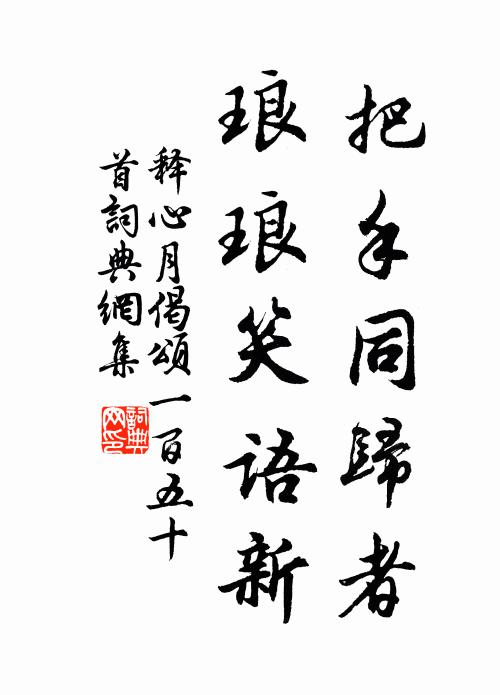 把手同歸者
琅琅笑語新
释心月偈頌一百五十
首詞典網集
詞典
网印